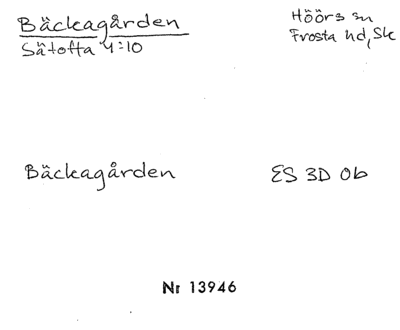 Bäckagården
Sätofta 4:10
Höörs sn
Frosta hd, Sk
Bäckagården
ES 3D 0b
Nr 13946